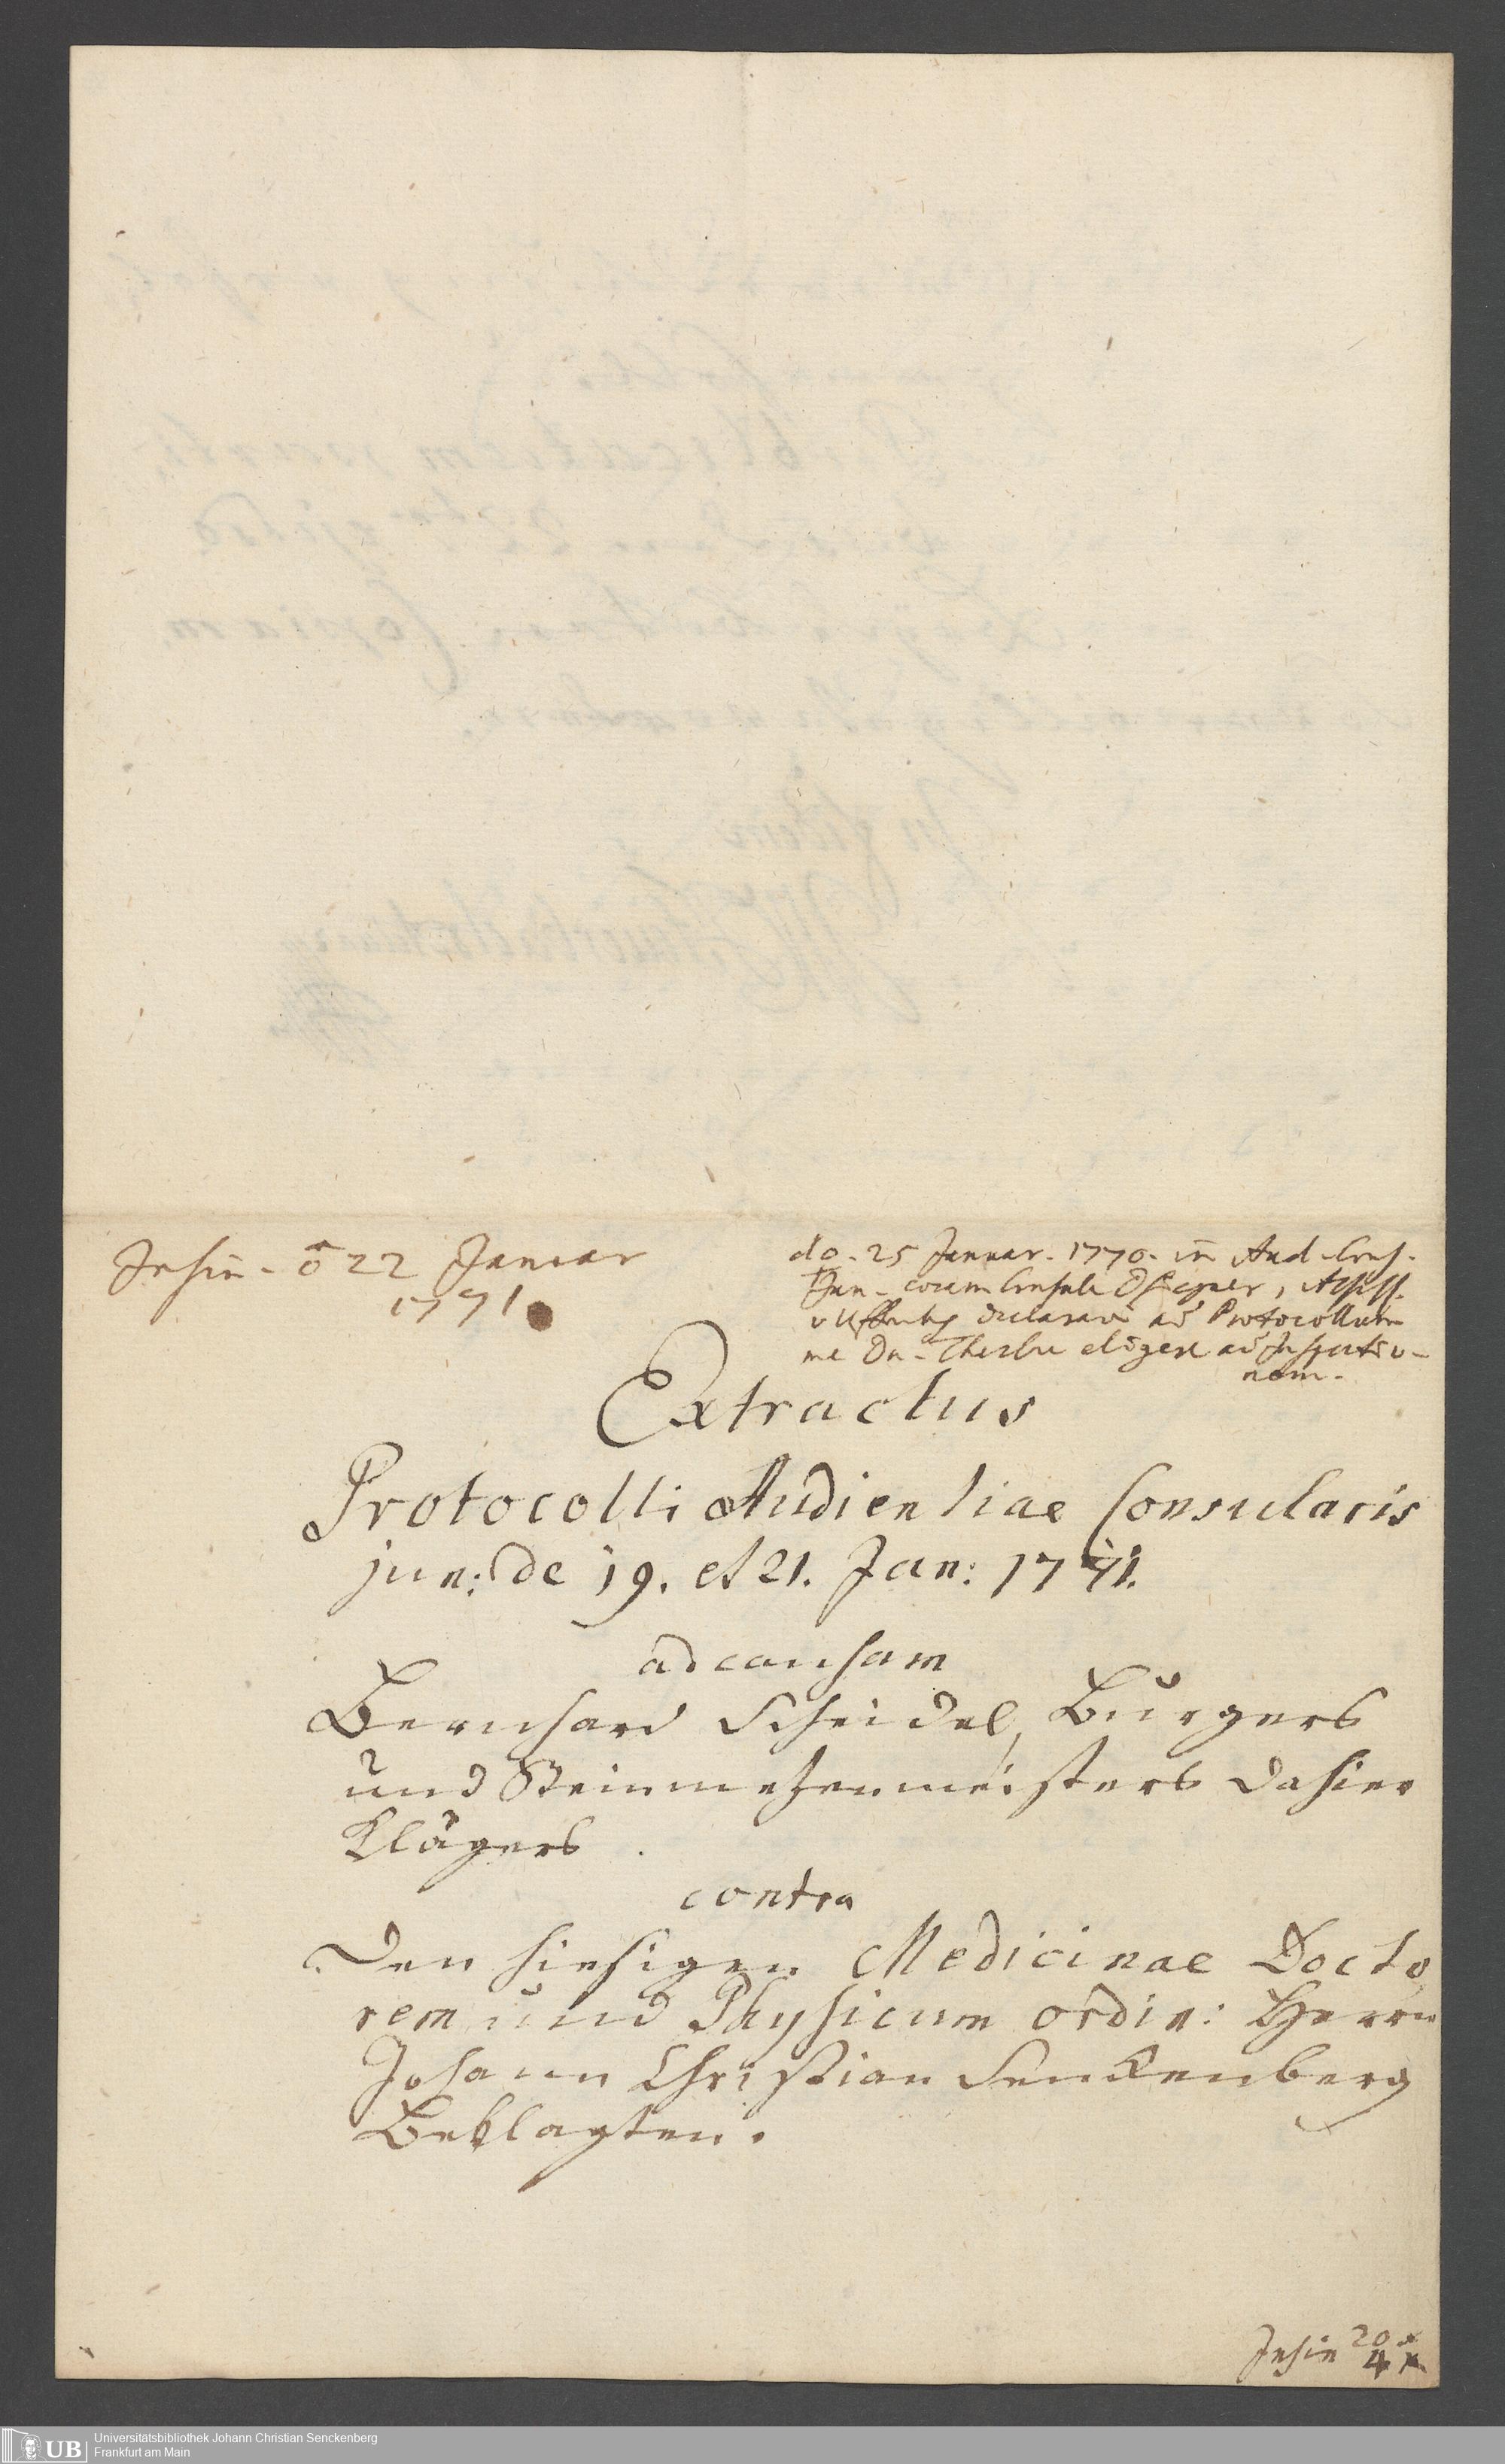 Insin. ♂ 22 Januar
1771
do. 25 Januar. 1770. in Aud. Cons.
Jun. coram Consule , Assess.
v Uffenbg declaravi ad Protocollum
me Dn. eligere ad Inspectio-
nem.
Extractus
Protocolli Audientiae Consularis
jun: de 19. et 21. Jan: 1771.
ad causam
Bernhard Scheidel, Burgers
und Steinmetzenmeisters dahier
Klägers.
contra
Den hiesigen Medicinae Docto
rem und Physicum ordin: Herrn
Johann Christian Senckenberg
Beklagten.
Insin 20 x
4 x
UB
Universitätsbibliothek Johann Christian Senckenberg
Frankfurt am Main